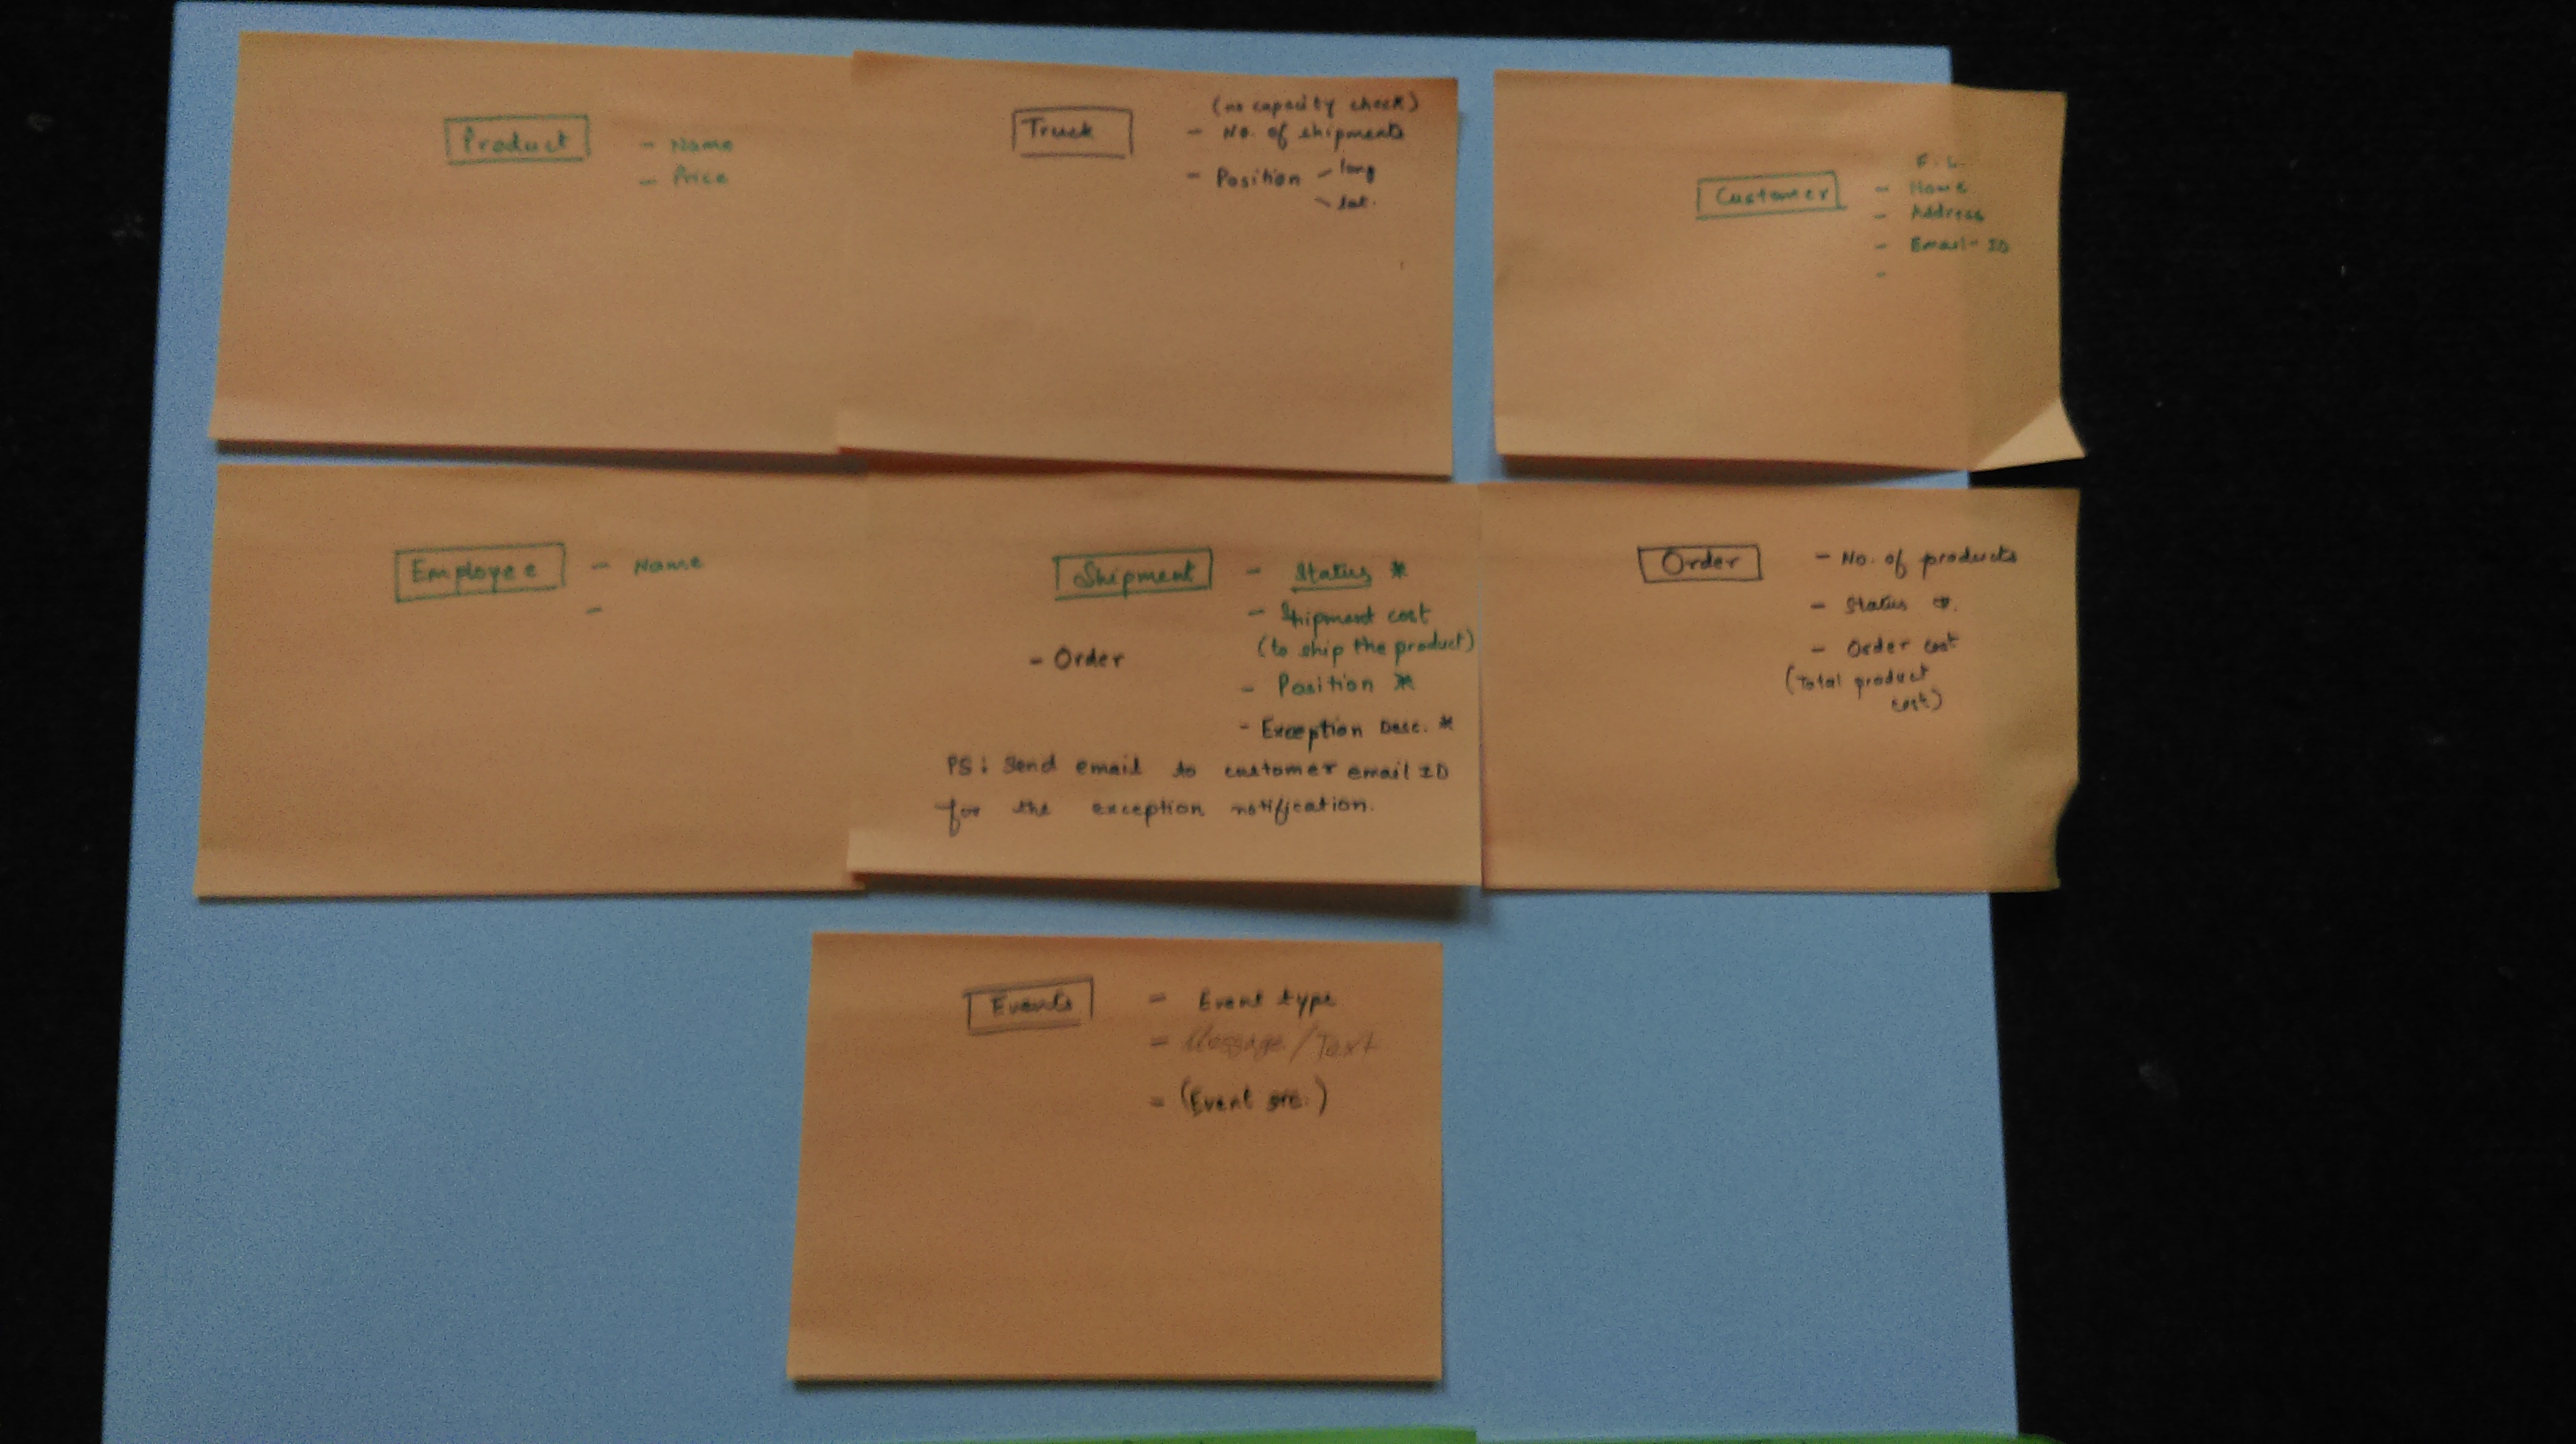 Product
- Name
- Price
Truck
(no capacity check)
- No. of shipments
- Position - long
- lat.
Customer
F. L.
- Name
- Address
- Email-ID
-
Employee
- Name
-
Shipment
- Status *
- Shipment cost
(to ship the product)
- Order
- Position *
- Exception Desc. *
PS: Send email to customer email ID
for the exception notification.
Order
- No. of products
- Status *.
- Order cost
(Total product
cost)
Events
- Event type
- Message/Text
- (Event src.)